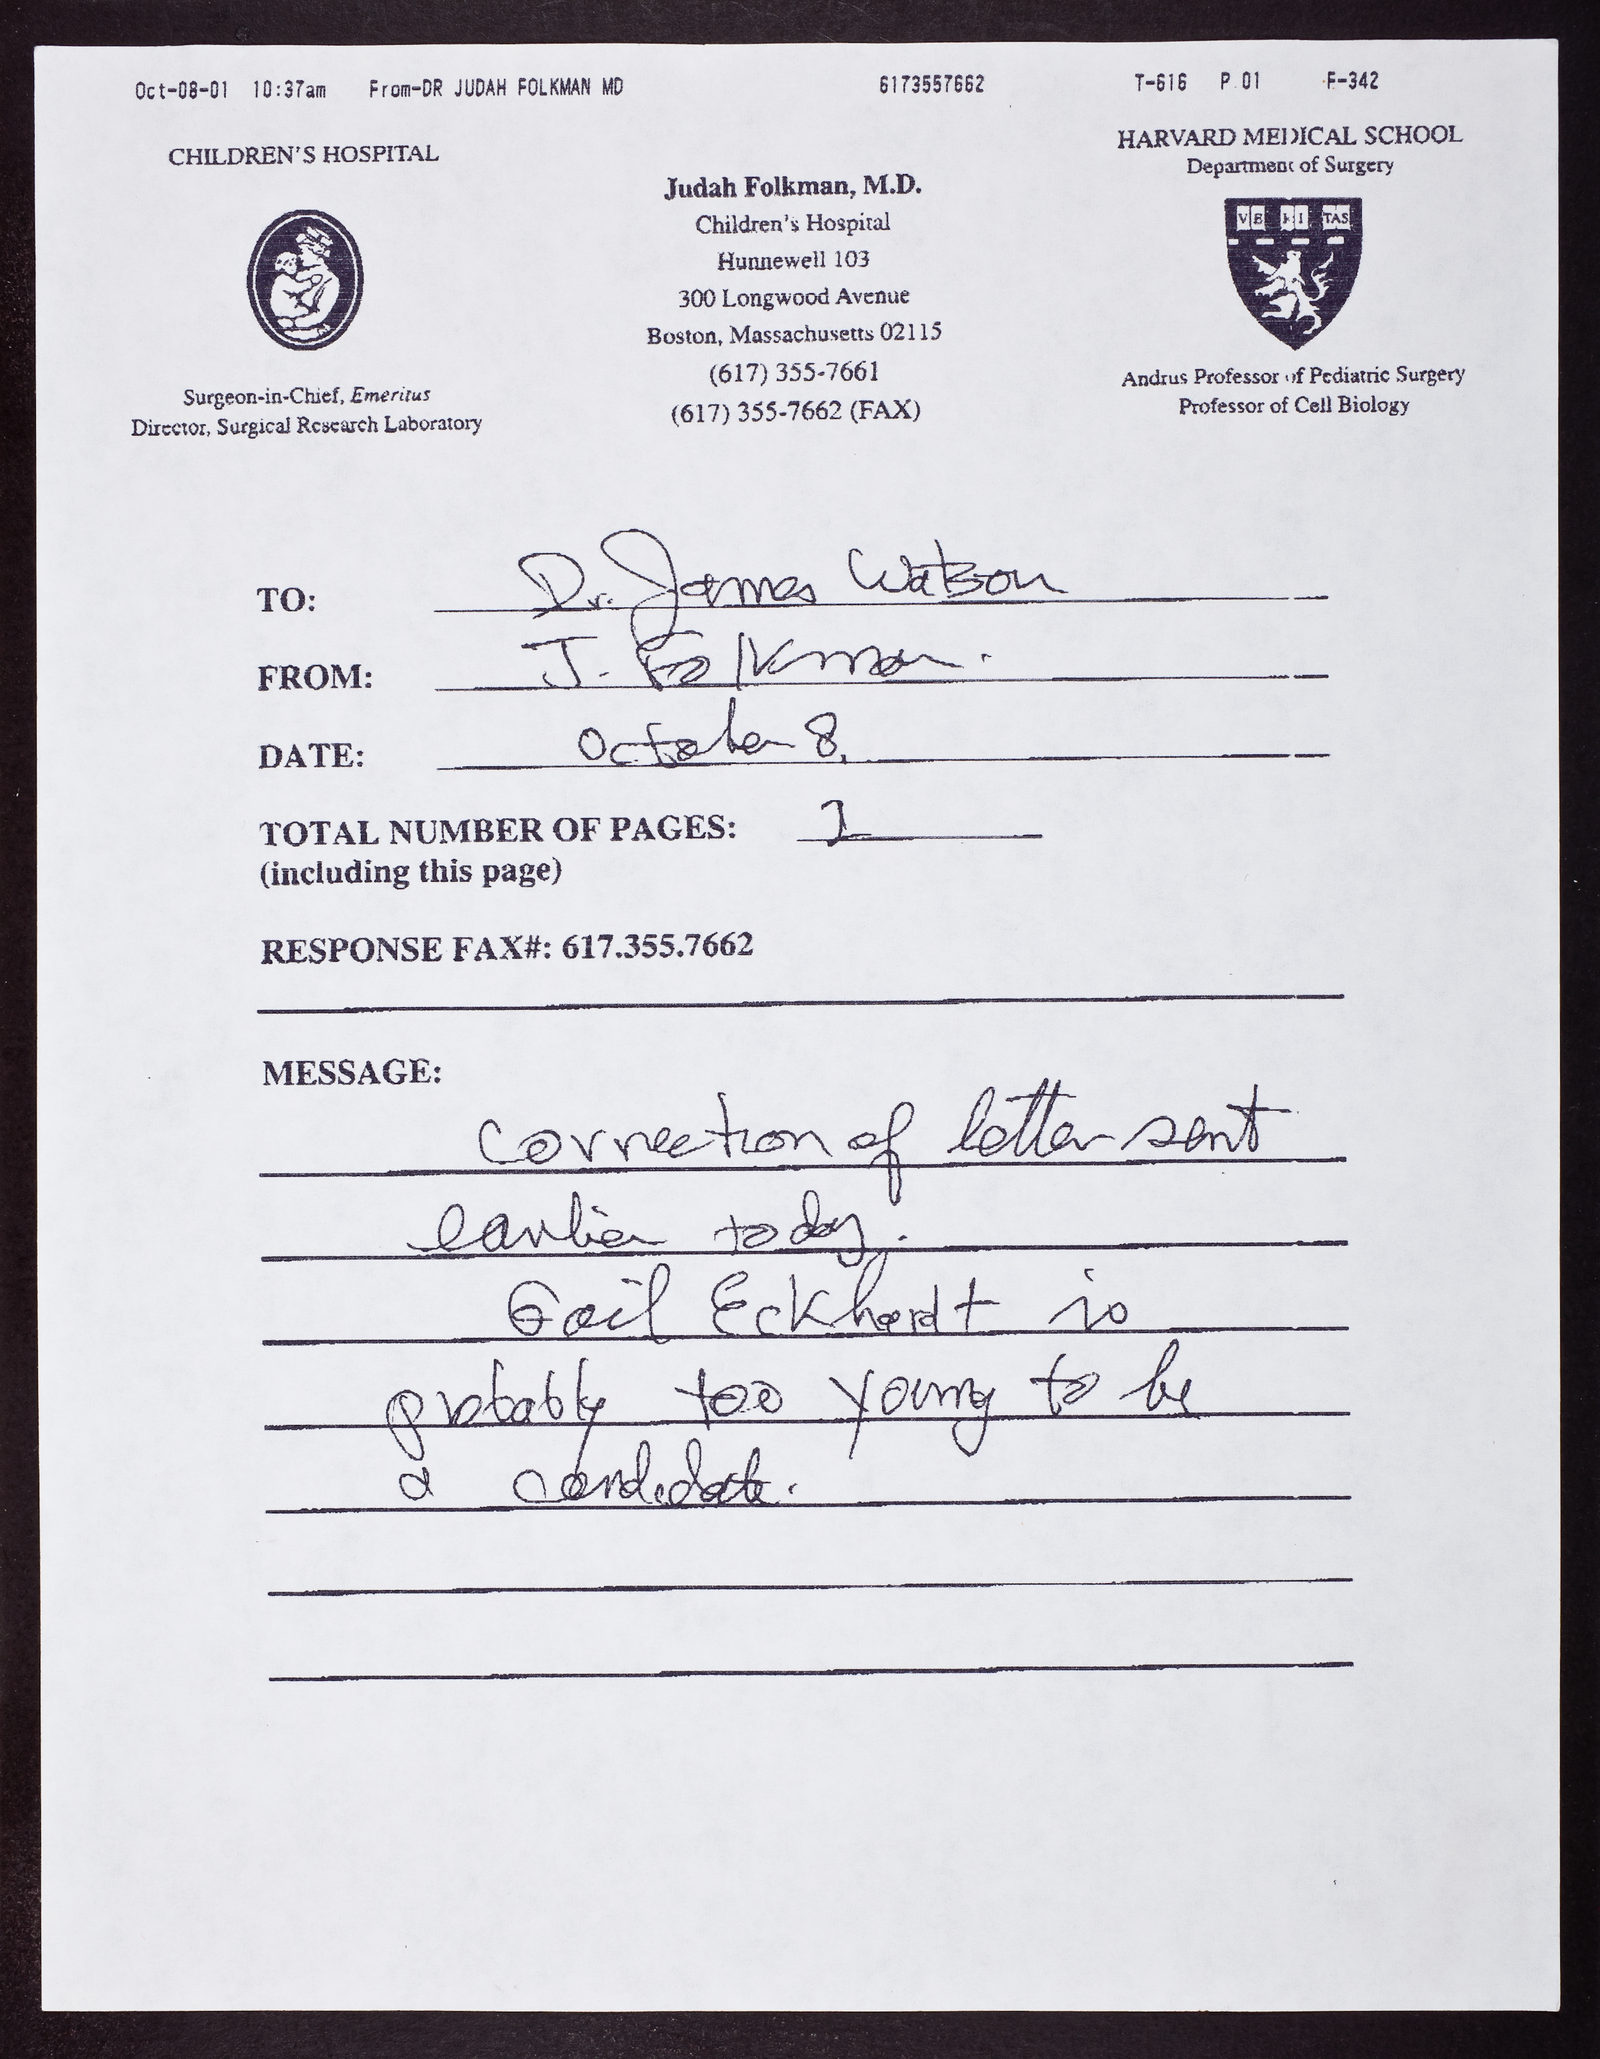 Oct-08-01 10:37am From-DR JUDAH FOLKMAN MD 6173557662 T-616 P.01 F-342
CHILDREN'S HOSPITAL
Surgeon-in-Chief, Emeritus
Director, Surgical Research Laboratory
Judah Folkman, M.D.
Children's Hospital
Hunnewell 103
300 Longwood Avenue
Boston, Massachusetts 02115
(617) 355-7661
(617) 355-7662 (FAX)
HARVARD MEDICAL SCHOOL
Department of Surgery
VE RI TAS
Andrus Professor of Pediatric Surgery
Professor of Cell Biology
TO: Dr. James Watson
FROM: J. Folkman.
DATE: October 8,
TOTAL NUMBER OF PAGES:
(including this page)
RESPONSE FAX#: 617.355.7662
MESSAGE:
Correction of letter sent
earlier today.
Gail Eckhardt is
probably too young to be
a candidate.